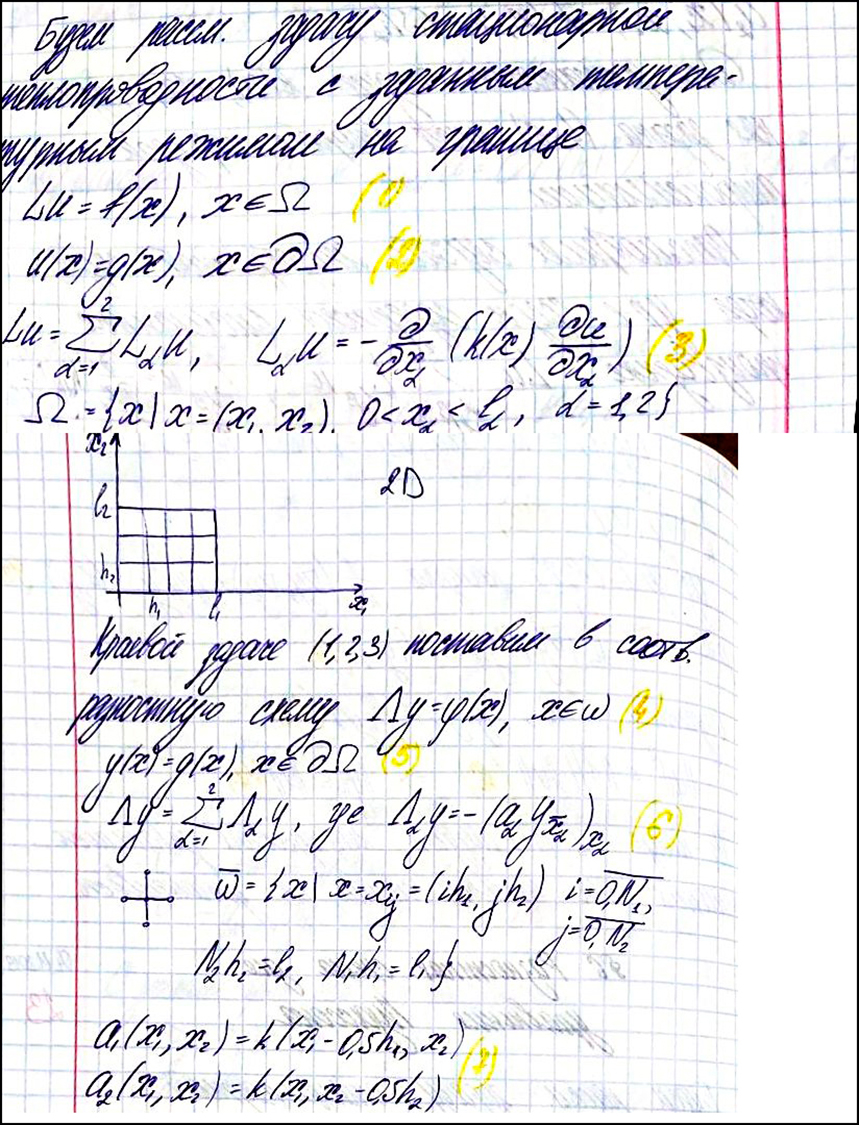 Будем рассм. задачу стационарной
теплопроводности с заданным темпера-
турным режимом на границе
Lu = f(x), x ∈ Ω (1)
u(x) = g(x), x ∈ ∂Ω (2)
Lu = ∑_{α=1}^{2} L_α u, L_α u = - ∂/∂x_α (k(x) ∂u/∂x_α) (3)
Ω = {x | x = (x₁, x₂), 0 < x_α < l_α, α = 1,2}
x₂
2D
l₂
h₂
h₁ l₁ x₁
Краевой задаче (1,2,3) поставим в соотв.
разностную схему Λy = φ(x), x ∈ ω (4)
y(x) = g(x), x ∈ ∂Ω (5)
Λy = ∑_{α=1}^{2} Λ_α y, где Λ_α y = - (a_α y_{x̄_α})_{x_α} (6)
ω̅ = {x | x = x_{ij} = (ih₁, jh₂) i = \overline{0,N₁},
j = \overline{0,N₂}
N₂h₂ = l₂, N₁h₁ = l₁}
a₁(x₁, x₂) = k(x₁ - 0,5h₁, x₂)
(7)
a₂(x₁, x₂) = k(x₁, x₂ - 0,5h₂)